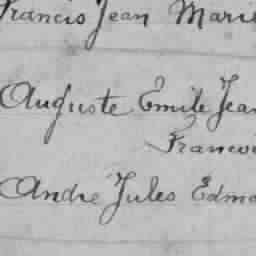 Francis Jean Marie
Auguste Emile Jean
Francoi
Andre Jules Edmo